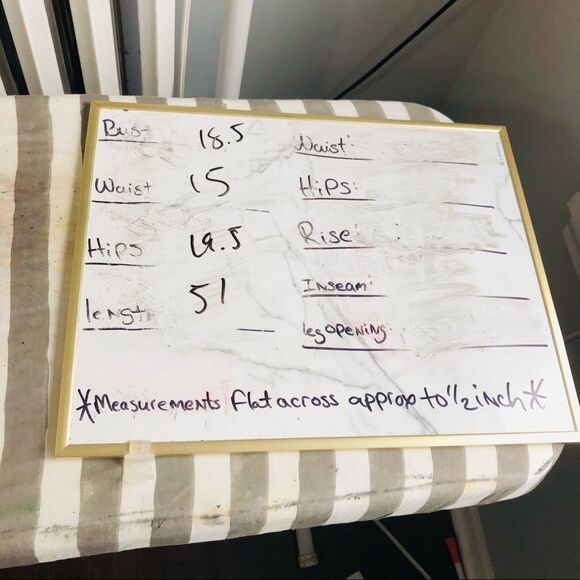 Bust 18.5
Waist 15
Hips 19.5
length 51
Waist:
Hips:
Rise:
Inseam:
leg opening:
*Measurements flat across approx to 1/2 inch*